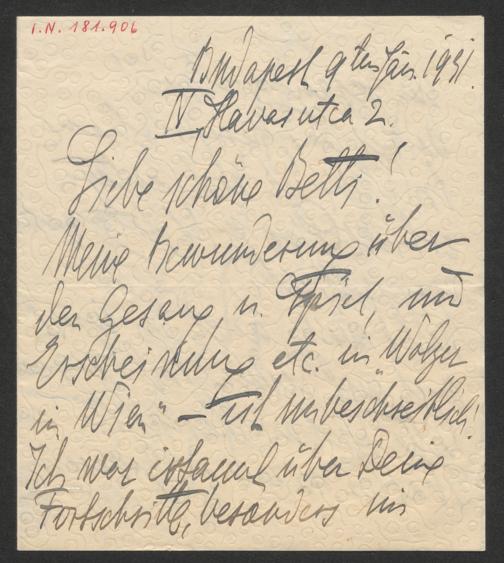 I.N. 181.906
Budapest 9ten Jän. 1931.
IV, Havas utca 2.
Liebe schöne Betti!
Meine Bewunderung über
den Gesang u. Spiel, und
Erscheinung etc. in "Walzer
in Wien" – ist unbeschreiblich!
Ich war erstaunt über Deine
Fortschritte, besonders im